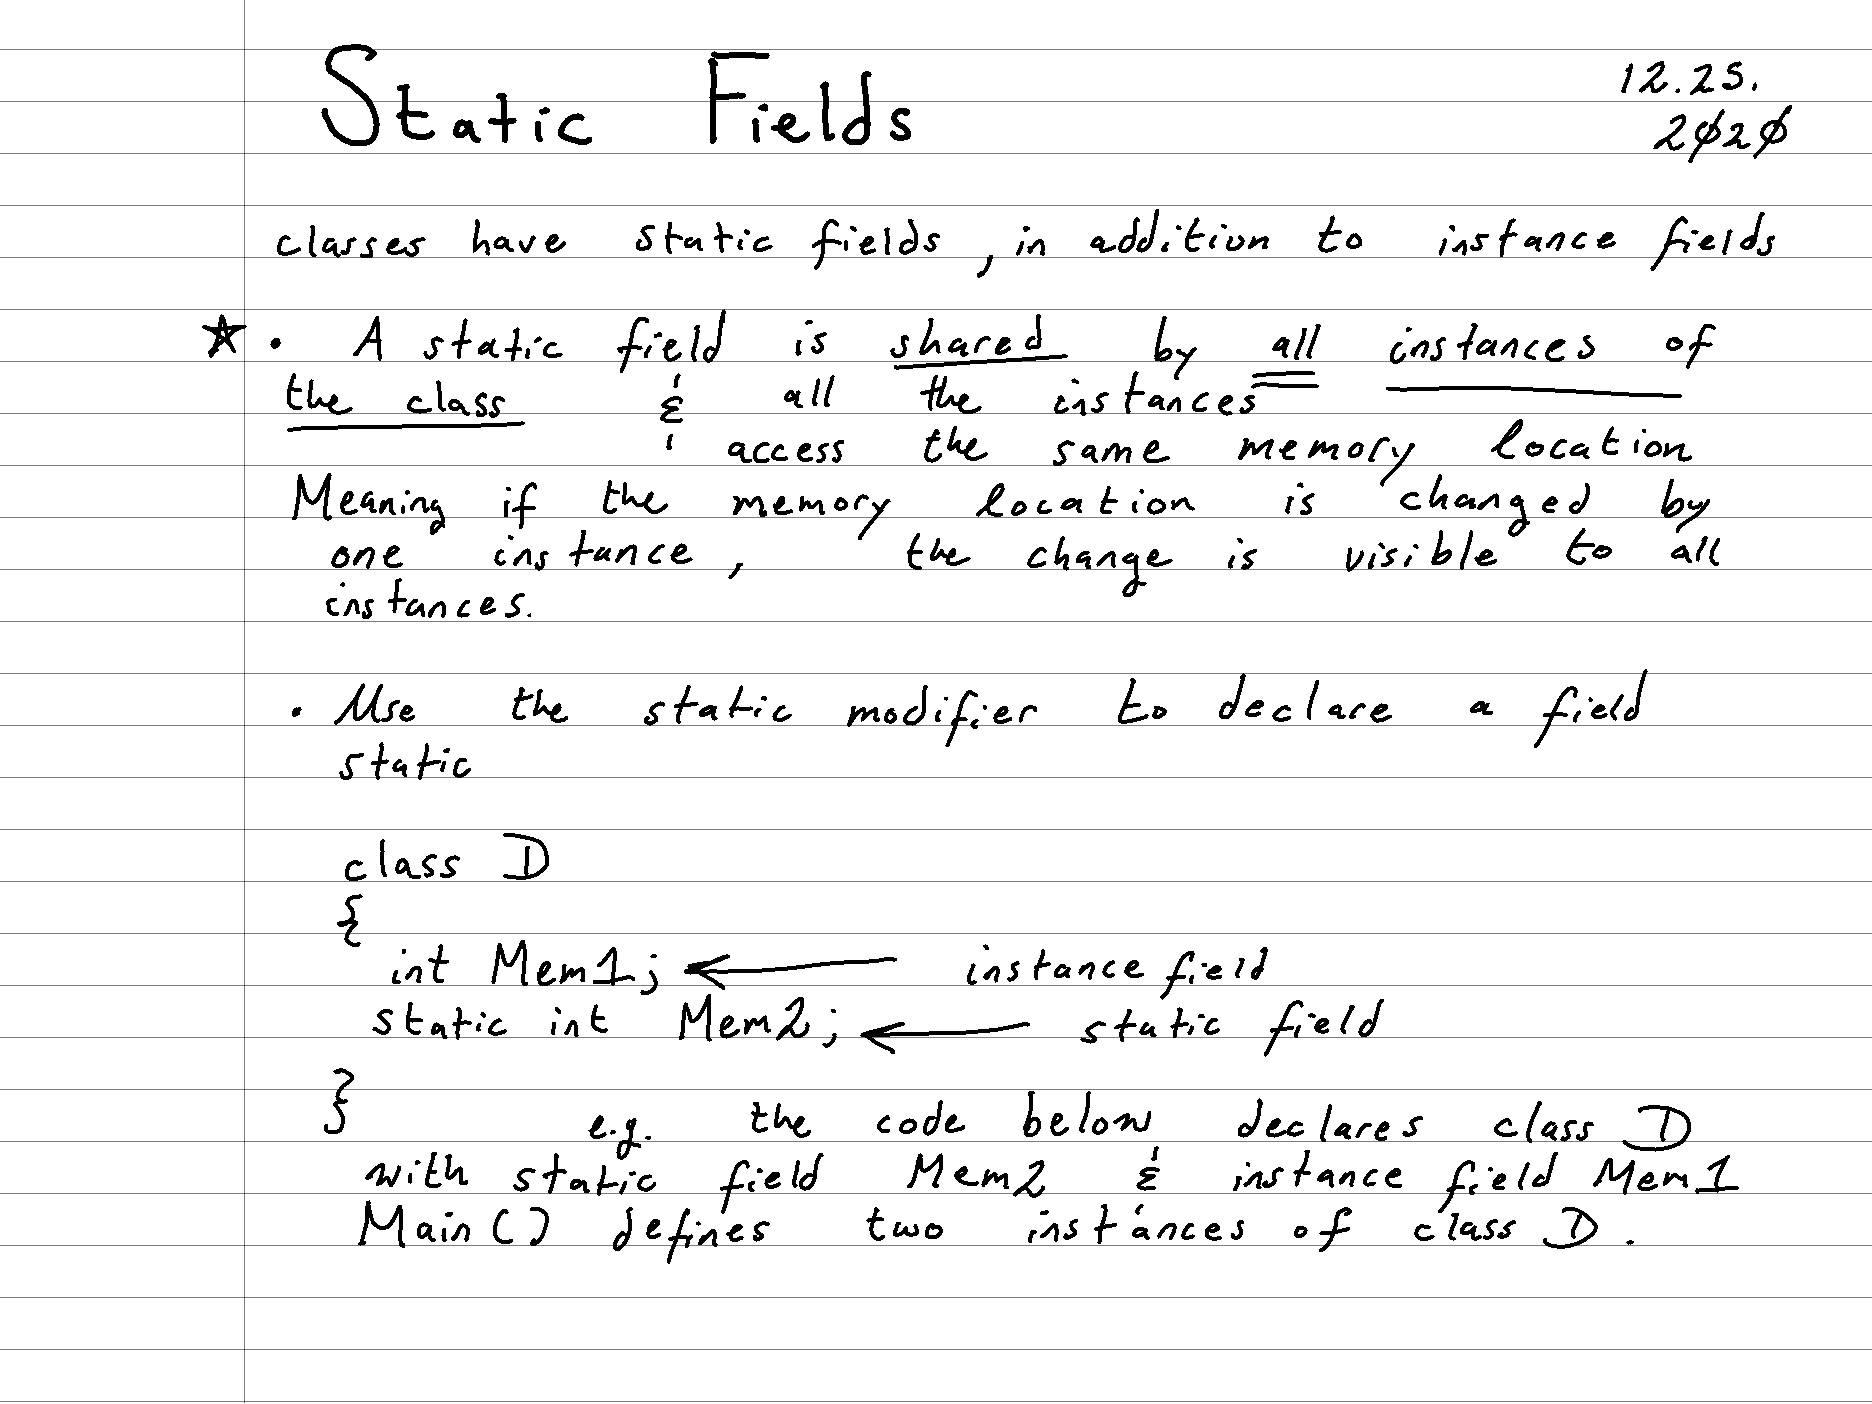 Static Fields
12.25.
2020
classes have static fields, in addition to instance fields
☆ • A static field is shared by all instances of
the class & all the instances
access the same memory location
Meaning if the memory location is changed by
one instance, the change is visible to all
instances.
• Use the static modifier to declare a field
static
class D
{
int Mem1; ← instance field
static int Mem2; ← static field
}
e.g. the code below declares class D
with static field Mem2 & instance field Mem1
Main() defines two instances of class D.